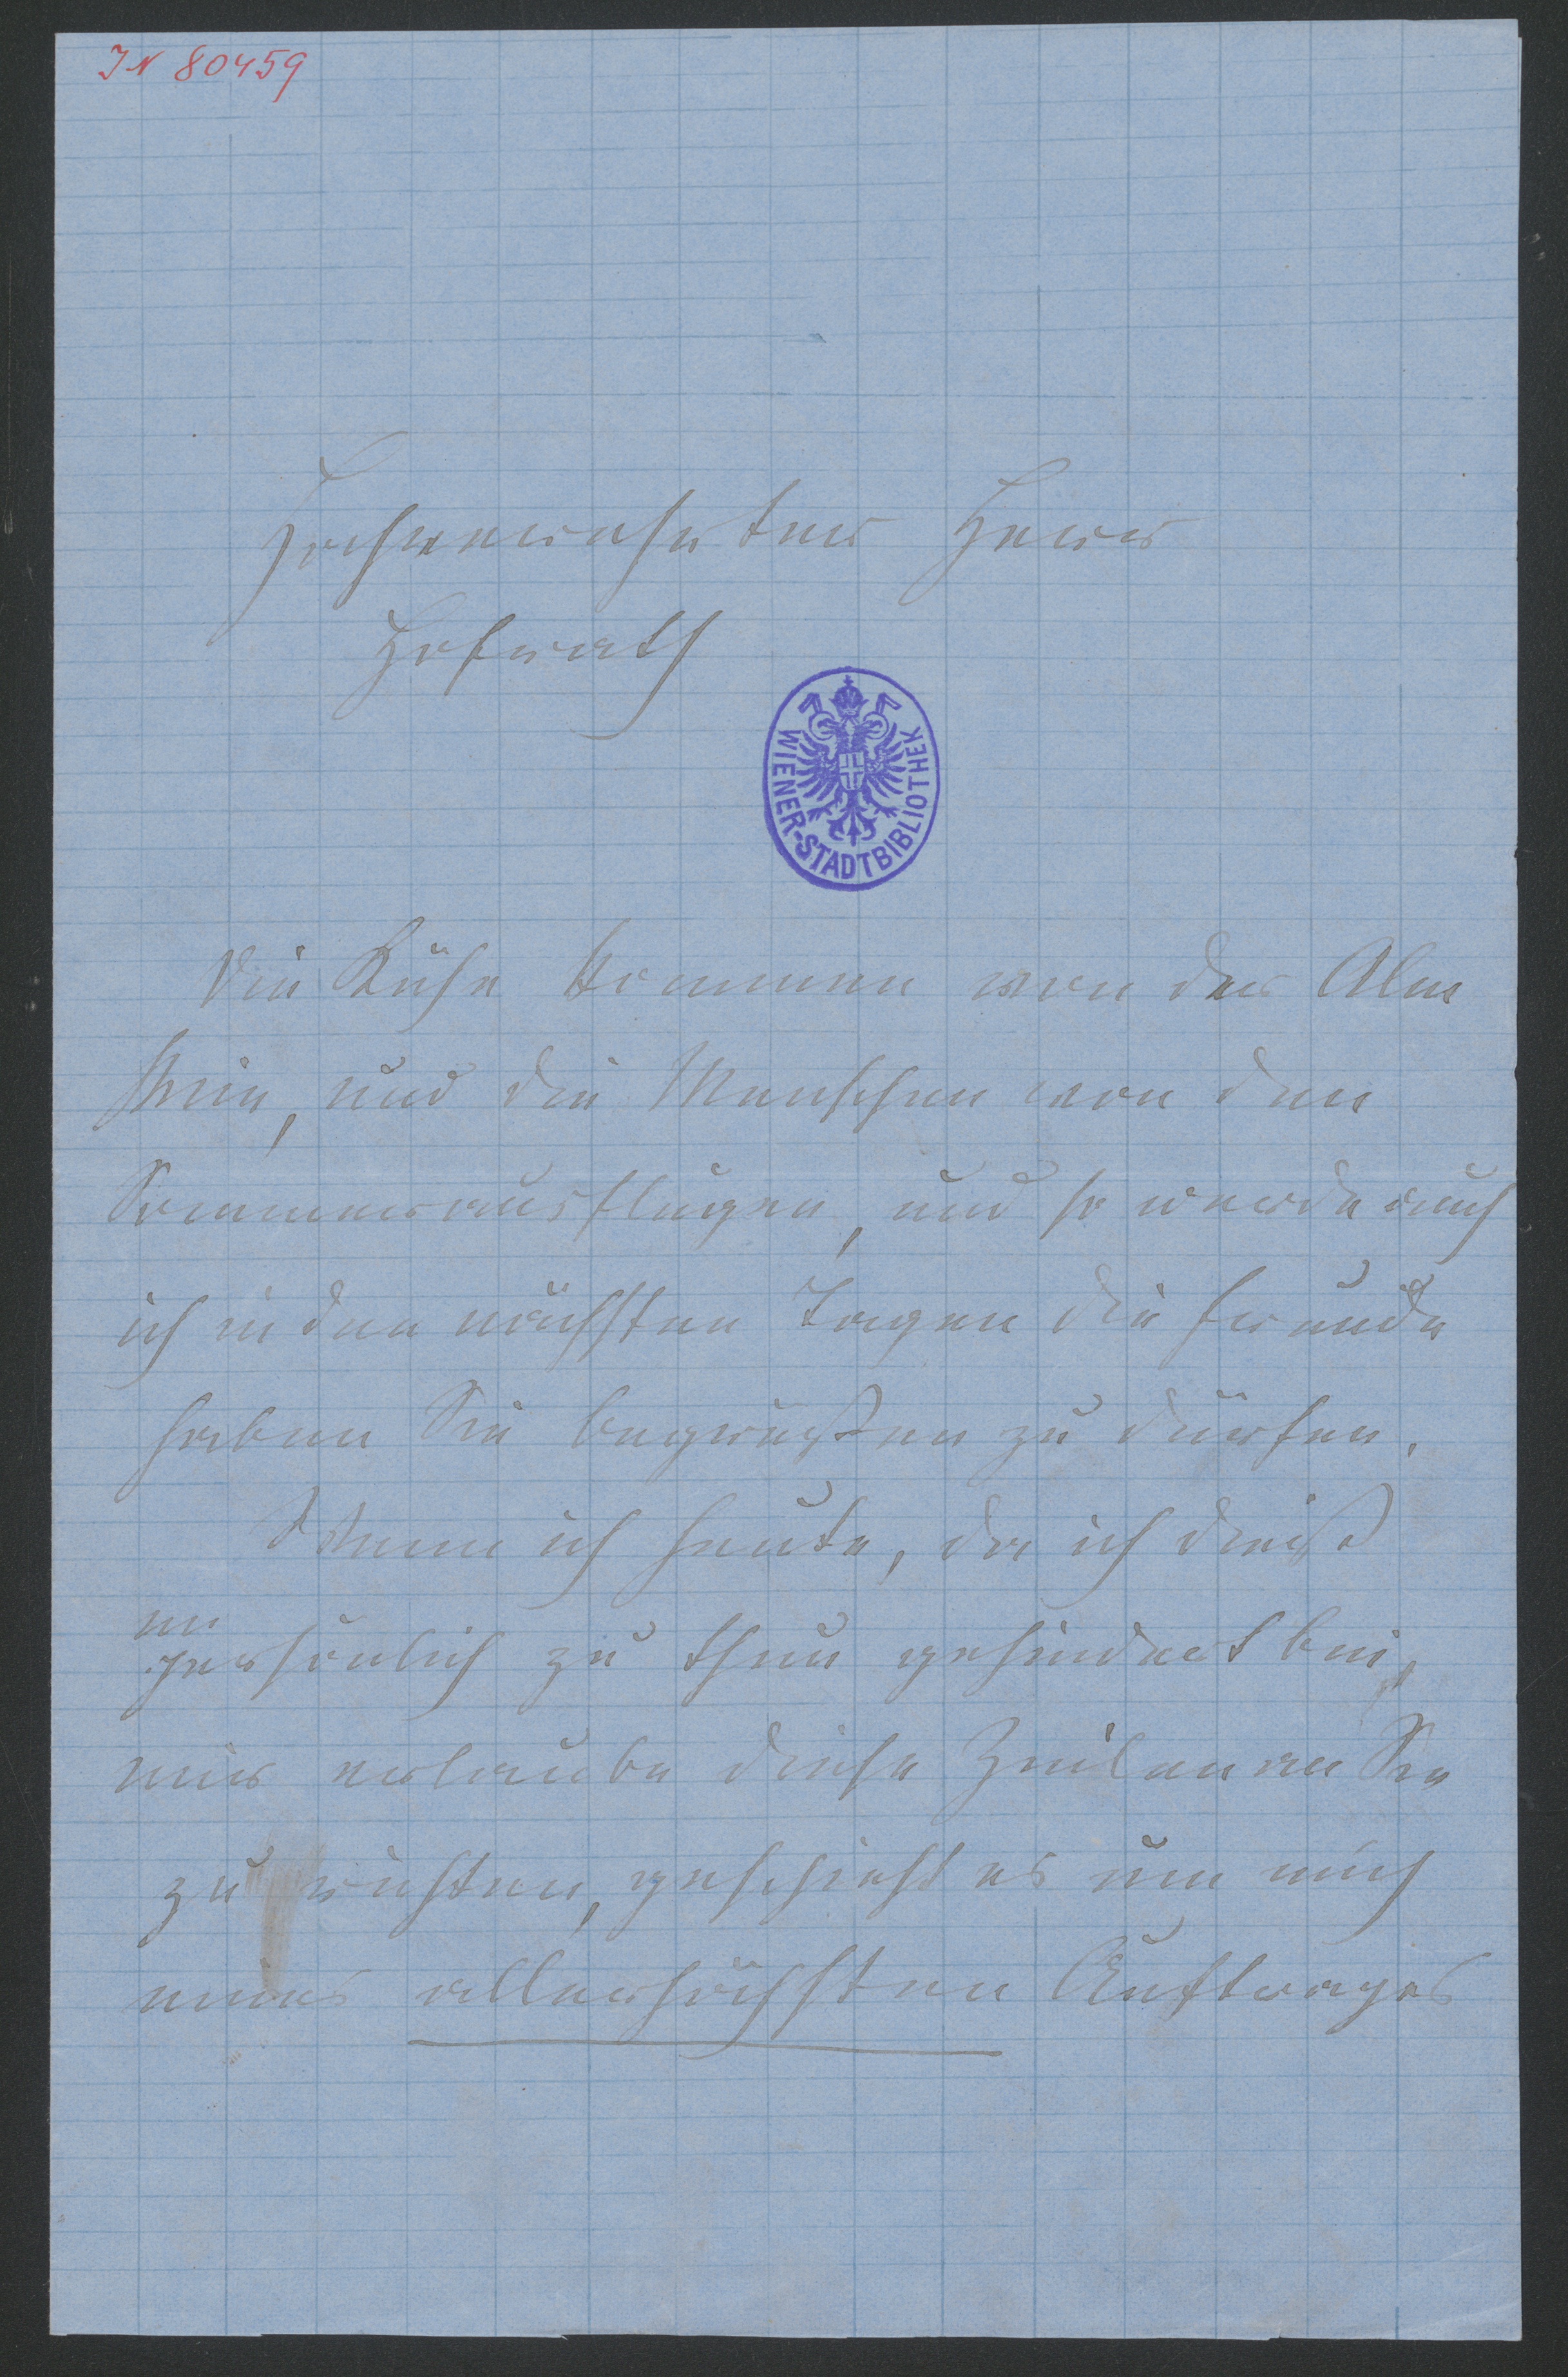 IN 80459
Hochverehrter Herr
Hofrath
WIENER-STADTBIBLIOTHEK
Die Kühe kommen von der Alm
heim, und die Menschen von den
Sommerausflügen, und so werde auch
ich in den nächsten Tagen die Freude
haben Sie begrüßen zu dürfen.
Wenn ich heute, da ich dieß
persönlich zu thun gehindert bin,
mir erlaube diese Zeilen an Sie
zu richten, geschieht es um mich
eines allerhöchsten Auftrages